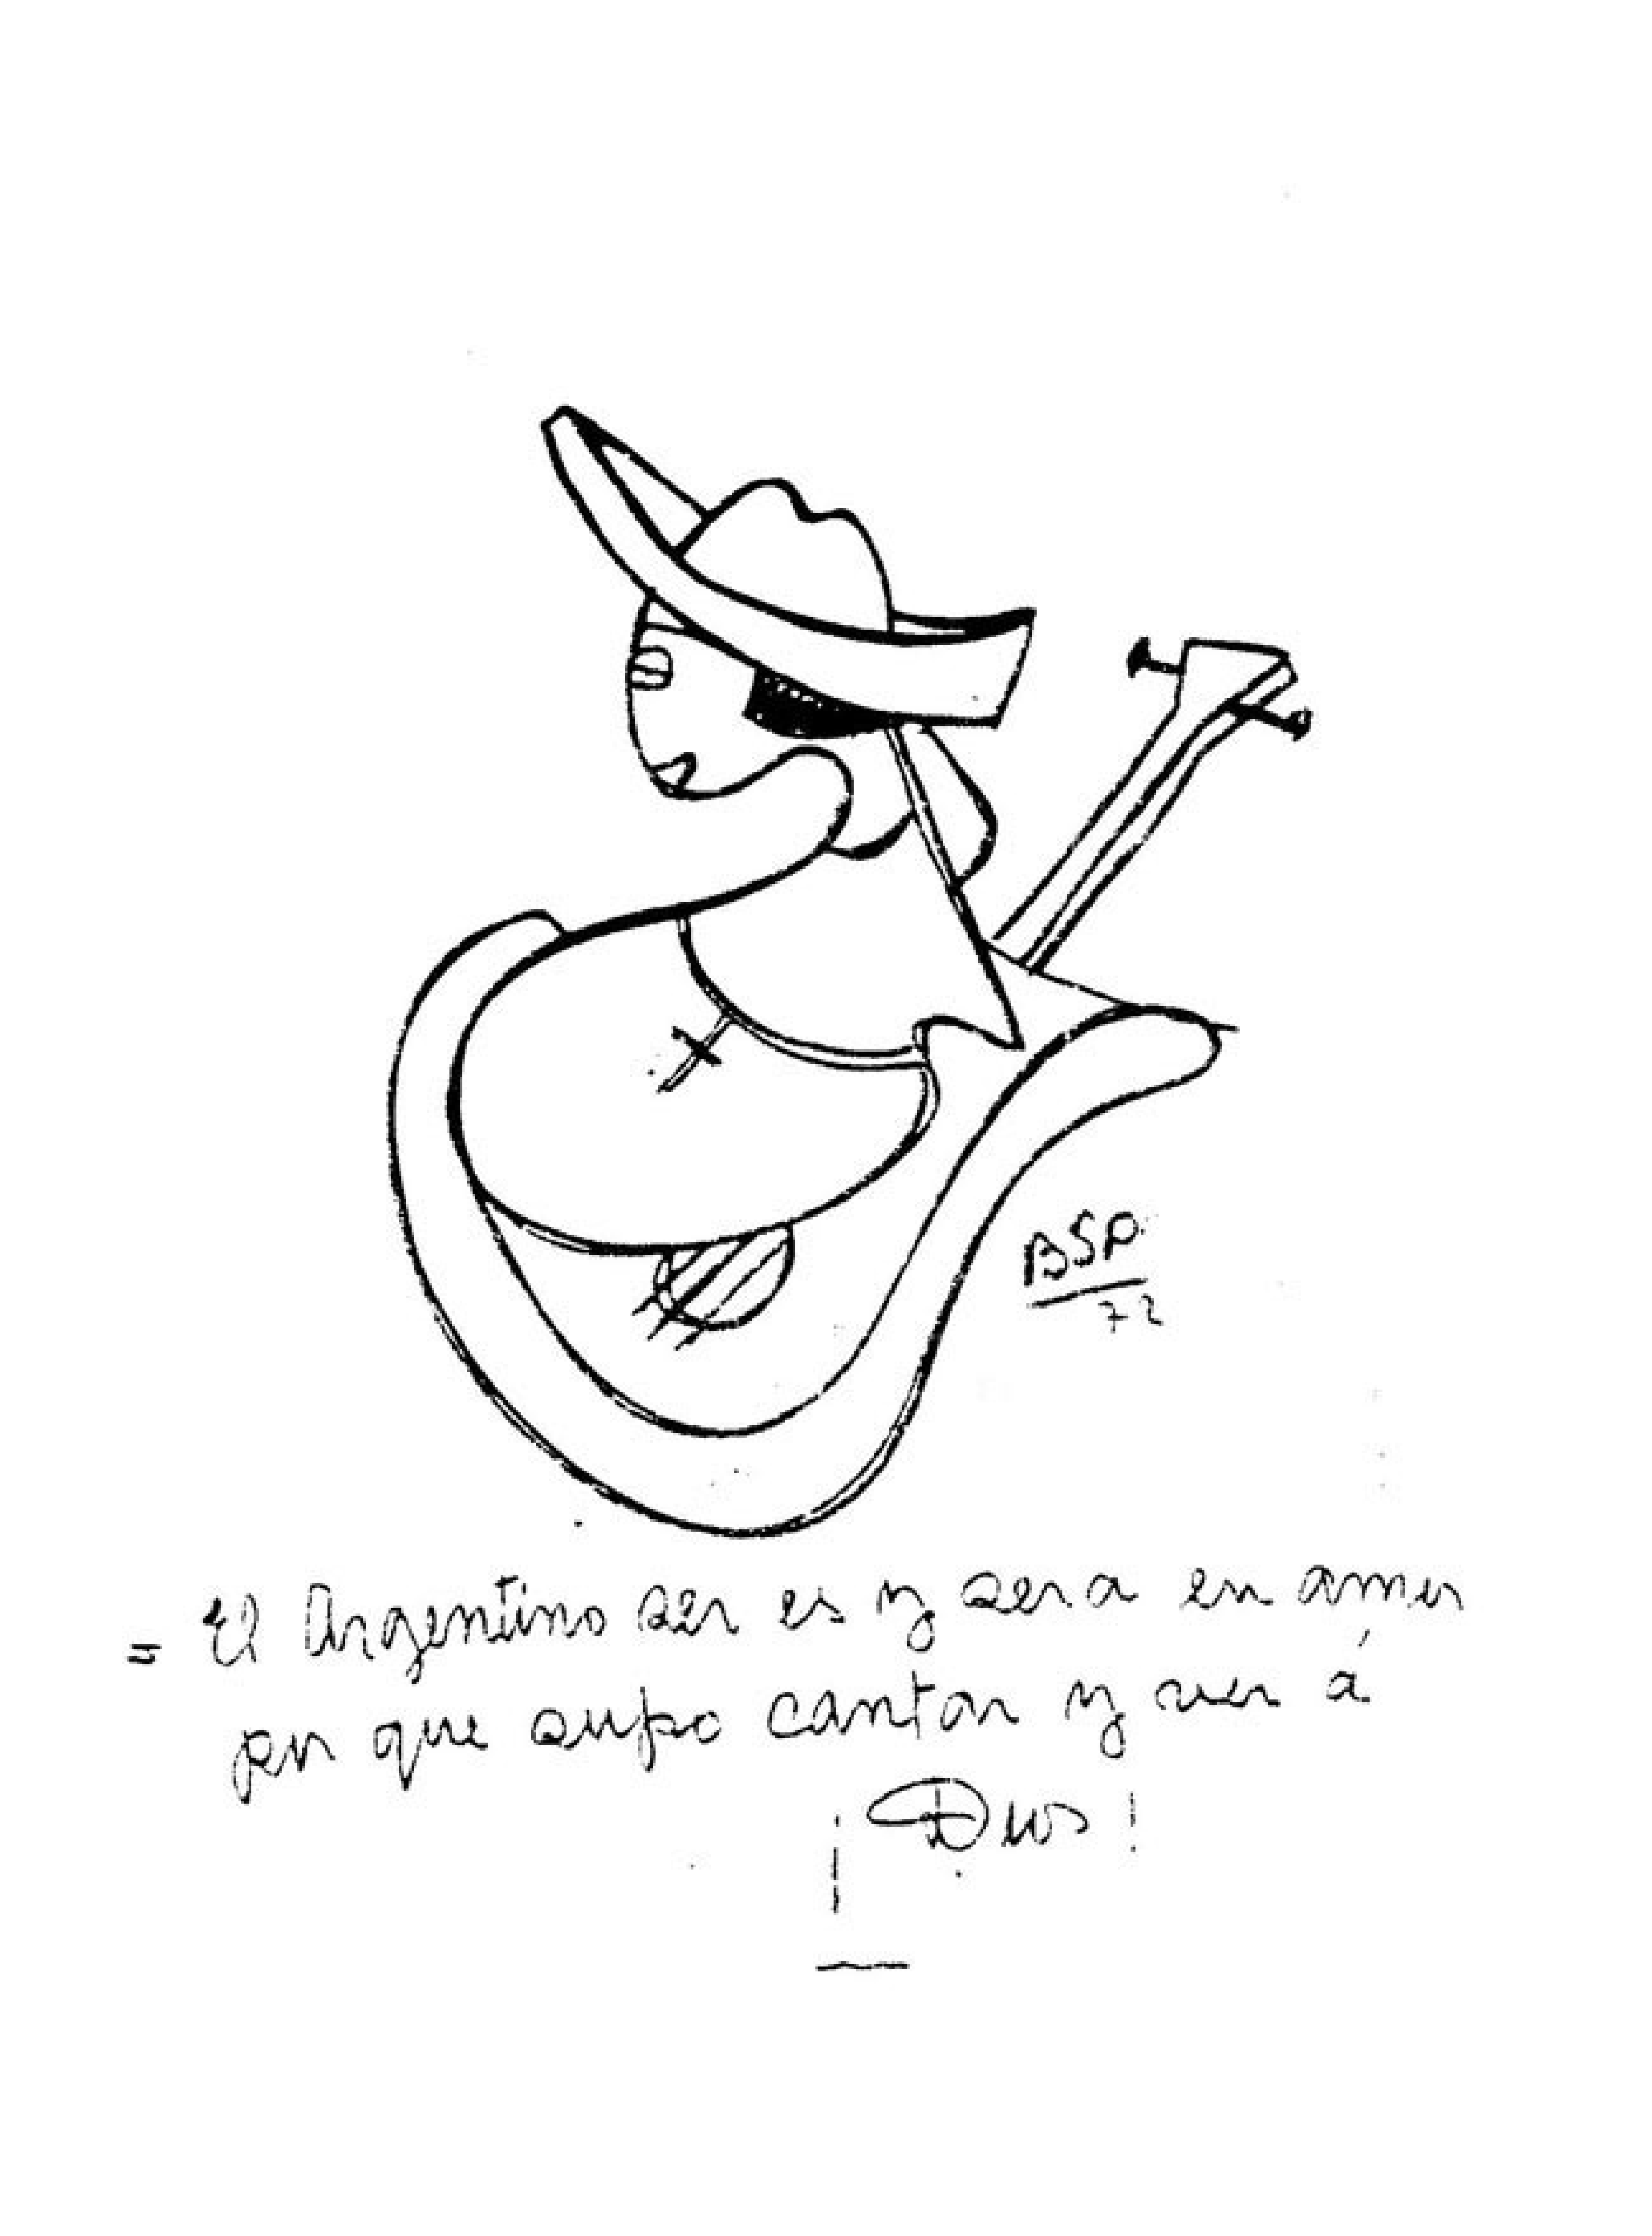 BSP
72
= El Argentino ser es y sera en amor
por que supo cantar y ver á
¡Dios!